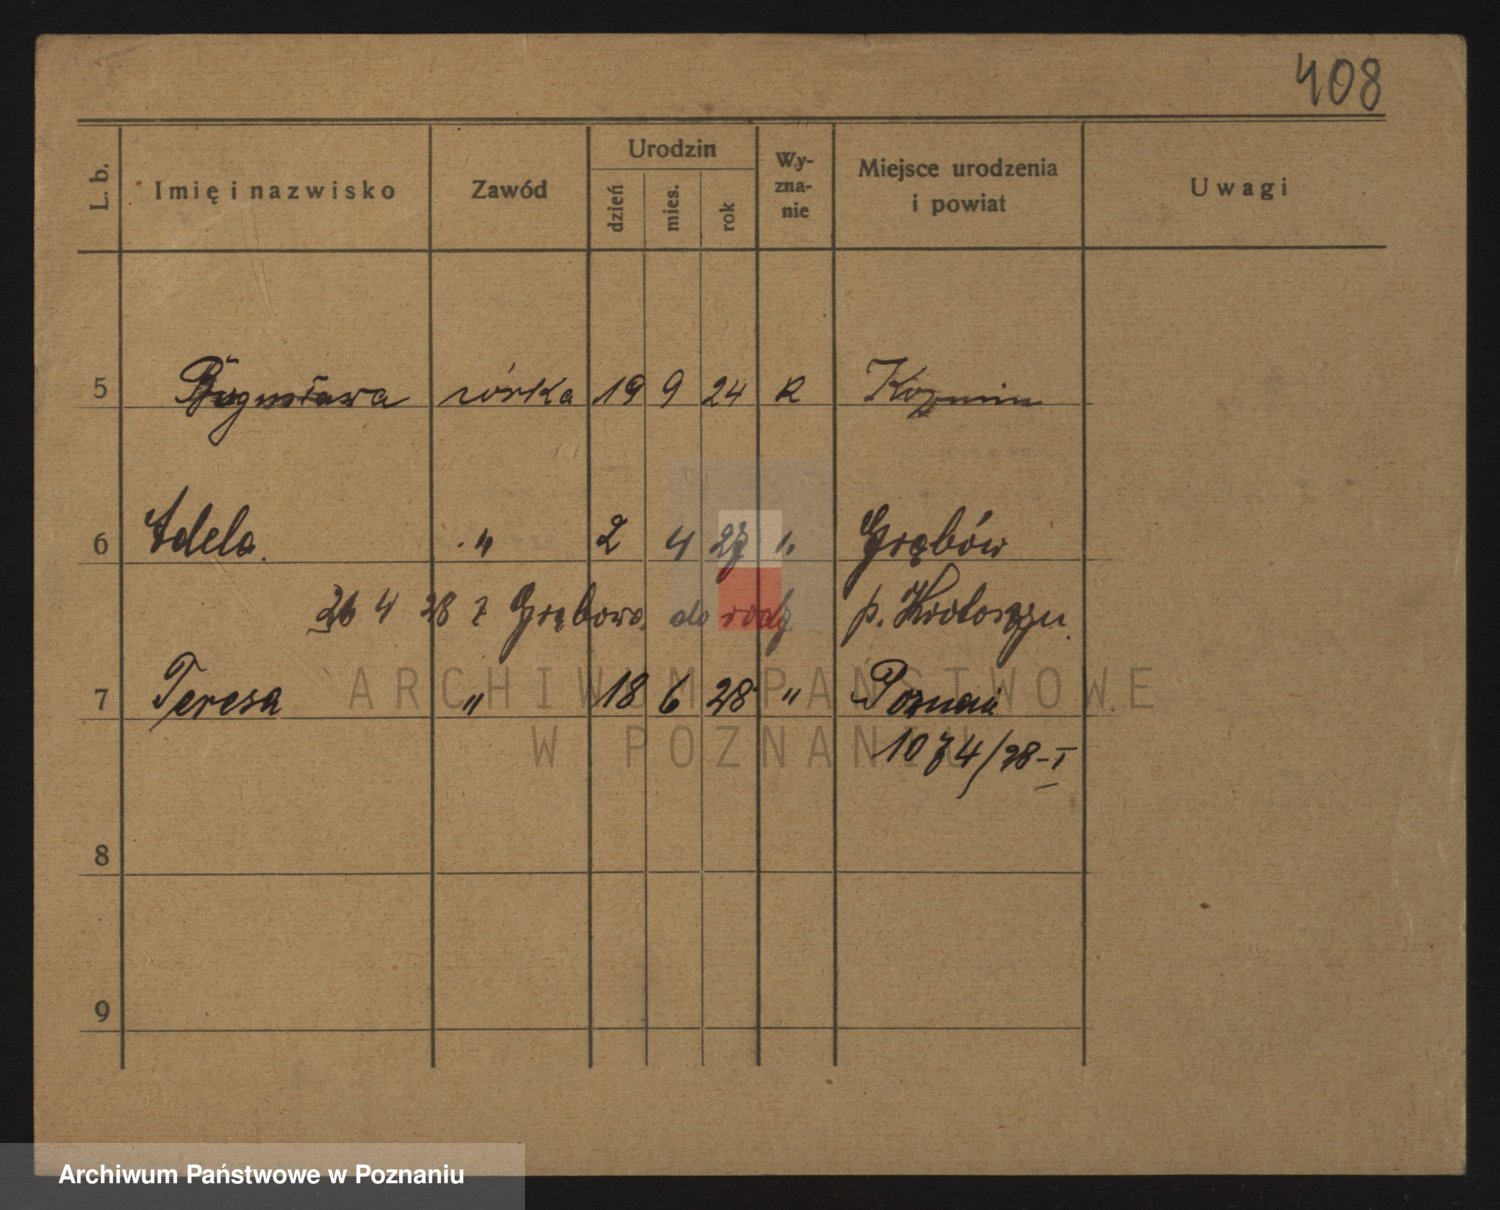 408
L. b. Imię i nazwisko Zawód Urodzin dzień mies. rok Wy-zna-nie Miejsce urodzenia i powiat Uwagi
5 Bogusława córka 19 9 24 R Kozmin
6 Adela " 2 4 27 " Grębów
26 4 28 z Grębowa do rodz. p. Krotoszyn
7 Teresa " 18 6 28 " Poznań
1074/28-I
8
9
ARCHIWUM PAŃSTWOWE
W POZNANIU
Archiwum Państwowe w Poznaniu